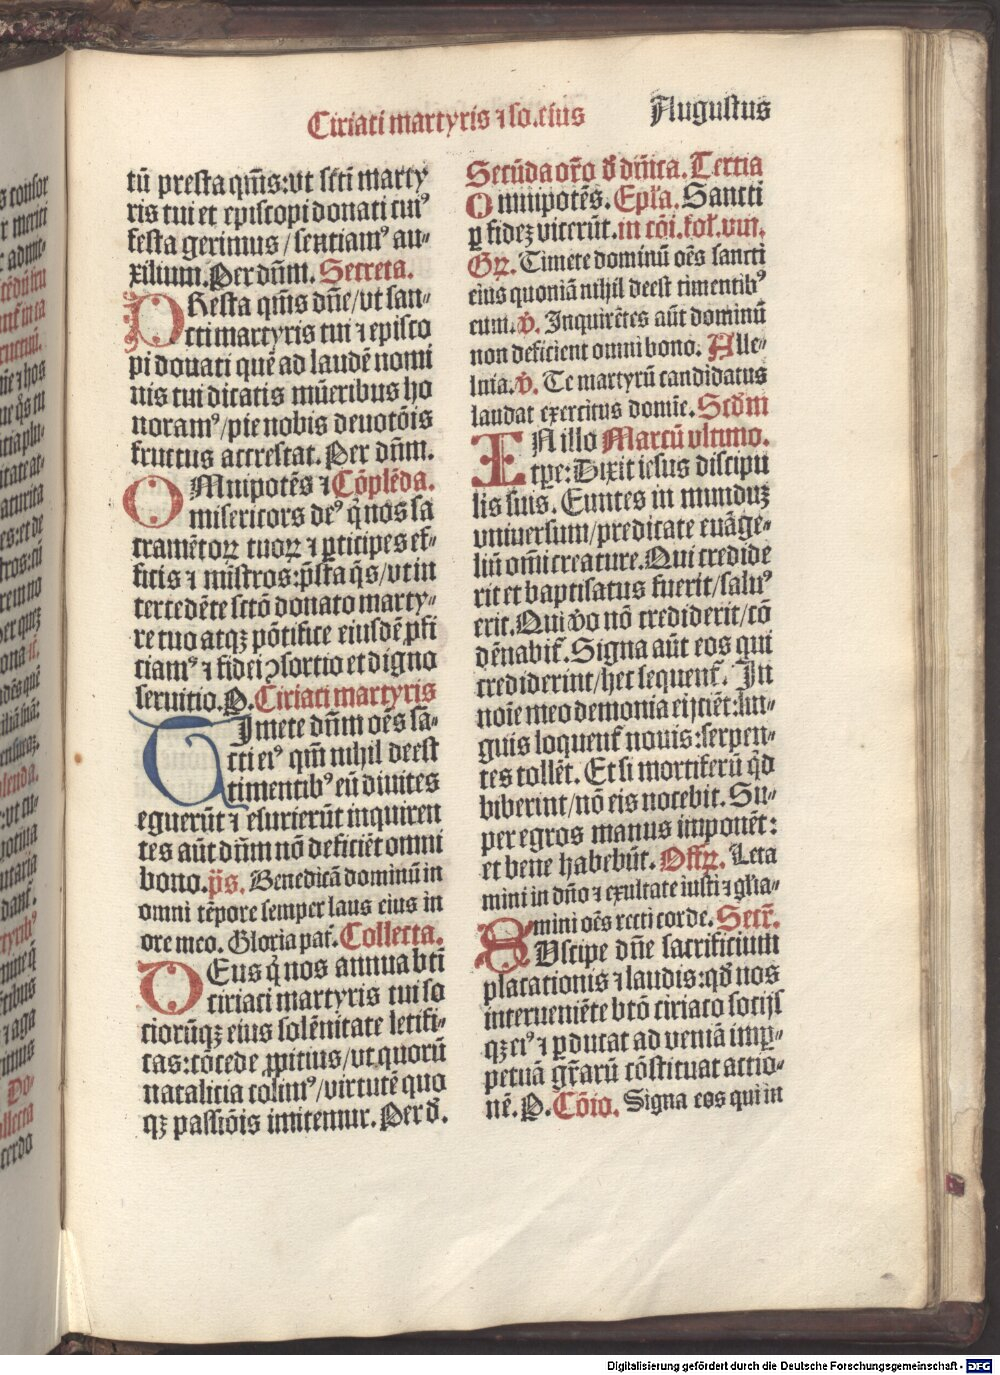 Ciriaci martyris ⁊ so. eius
Augustus
tū presta qm̄s: vt scti marty
ris tui et episcopi donati cuiꝰ
festa gerimus / sentiamꝰ au-
xilium. Per dn̄m. Secreta.
PResta qm̄s dn̄e / vt san-
cti martyris tui ⁊ episco
pi donati quē ad laudē nomi
nis tui dicatis mūeribus ho
noramꝰ / pie nobis deuotōis
fructus accrescat. Per dn̄m.
OMnipotēs ⁊ Cōplēda.
misericors deꝰ q̄ nos sa
cramētoꝝ tuoꝝ ⁊ ꝑticipes ef-
ficis ⁊ mīstros: p̄sta q̄s / vt in
tercedēte sctō donato marty-
re tuo atqꝫ pōtifice eiusdē ꝓfi
ciamꝰ ⁊ fidei ꝯsortio et digno
seruitio. P. Ciriaci martyris
TImete dn̄m oēs sā-
cti eiꝰ qm̄ nihil deest
timentibꝰ eū diuites
eguerūt ⁊ esurierūt inquiren
tes aūt dn̄m nō deficiēt omni
bono. p̄s. Benedicā dominū in
omni tēpore semper laus eius in
ore meo. Gloria pat̄. Collecta.
DEus q̄ nos annua bt̄i
ciriaci martyris tui so
ciorūqꝫ eius solēnitate letifi-
cas: cōcede ꝓpitius / vt quorū
natalicia colimꝰ / virtutē quo
qꝫ passiōis imitemur. Per d̄.
Secūda or̄o d̄ dn̄ica. Tercia
Omnipotēs. Epl̄a. Sancti
ꝑ fidez vicerūt. in cōi. fol. viii.
Gꝝ. Timete dominū oēs sancti
eius quoniā nihil deest timentibꝰ
eum. v̄. Inquirētes aūt dominū
non deficient omni bono. Alle-
luia. v̄. Te martyrū candidatus
laudat exercitus domīe. Scd̄m
IN illo Marcū vltimo.
tꝑe: Dixit iesus discipu
lis suis. Euntes in munduꝫ
vniuersum / predicate euāge-
liū om̄i creature. Qui credide
rit et baptisatus fuerit / saluꝰ
erit. Qui v̄o nō crediderit / cō
dēnabit̄. Signa aūt eos qui
crediderint / hec sequent̄. In
noīe meo demonia eijciēt: lin-
guis loquent̄ nouis: serpen-
tes tollēt. Et si mortiferū q̄d
biberint / nō eis nocebit. Su-
per egros manus imponēt:
et bene habebūt. Offꝝ. Leta
mini in dn̄o ⁊ exultate iusti ⁊ gl̄ia-
mini oēs recti corde. Secr̄.
SUscipe dn̄e sacrificium
placationis ⁊ laudis: qd̄ nos
interueniēte bt̄o ciriaco socijs
qꝫ eiꝰ ⁊ ꝑducat ad veniā ⁊ inꝑ-
petuā gr̄arū cōstituat actio-
nē. P. Cōio. Signa eos qui in
Digitalisierung gefördert durch die Deutsche Forschungsgemeinschaft - DFG